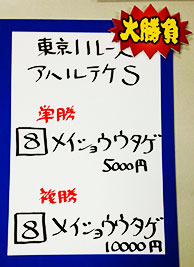 大勝負
東京11レース
アハルテケS
単勝
8 メイショウウタゲ
5000円
複勝
8 メイショウウタゲ
10000円